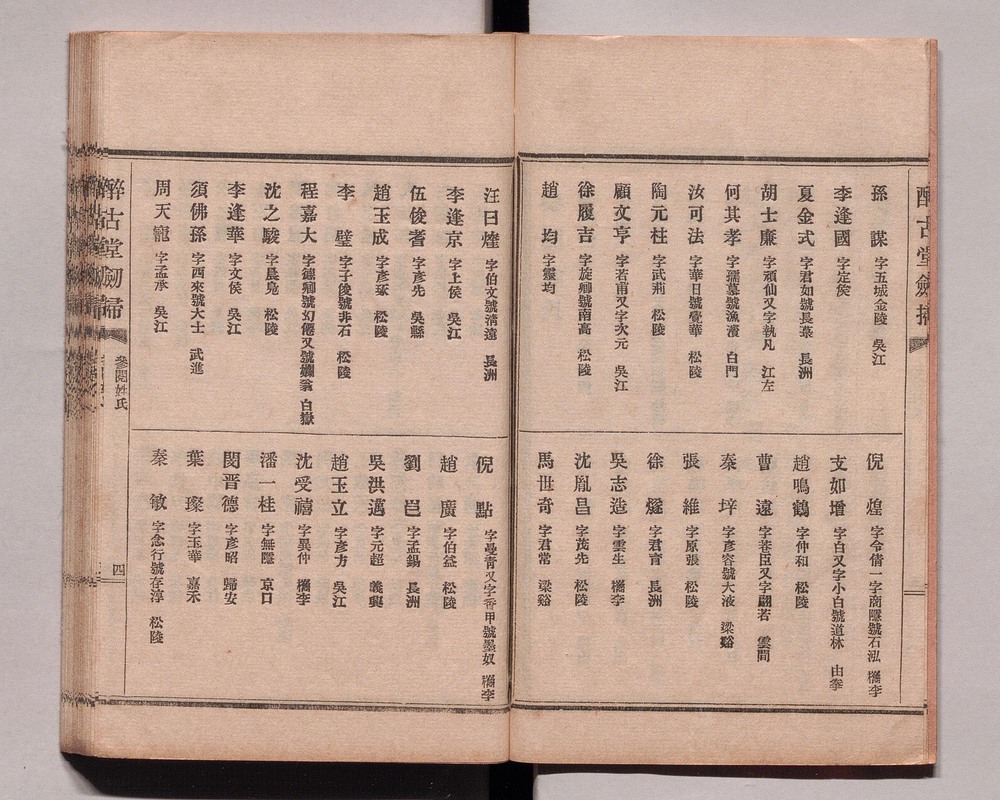 孫　謀 字五城金陵　吳江
李逢國 字定侯
夏金式 字君如號長葉　長洲
胡士廉 字頑仙又字執凡　江左
何其孝 字孺慕號漁濱　白門
汝可法 字華日號膏華　松陵
陶元柱 字武荊　松陵
顧文亨 字若甫又字次元　吳江
徐履吉 字旋卿號南高　松陵
趙　均 字靈均
倪　煌 字令倩一字南隱號石泓　檇李
支如增 字白又字小白號道林　由拳
趙鳴鶴 字仲和　松陵
曹　遠 字荅臣又字翩若　雲間
秦　垶 字彥容號大液　梁谿
張　維 字原張　松陵
徐　燧 字君育　長洲
吳志造 字雲生　檇李
沈胤昌 字茂先　松陵
馬世奇 字君常　梁谿
汪日煃 字伯文號清遠　長洲
李逢京 字上侯　吳江
伍俊耆 字彥先　吳縣
趙玉成 字彥琢　松陵
李　璧 字子俊號非石　松陵
程嘉大 字卿號幻僊又號翁　白嶽
沈之駿 字晨鳧　松陵
李逢華 字文侯　吳江
須佛孫 字西來號大士　武進
周天龍 字孟承　吳江
倪　點 字曼青又字香甲號墨奴　檇李
趙　廣 字伯益　松陵
劉　邑 字孟錫　長洲
吳洪邁 字元超　義興
趙玉立 字彥方　吳江
沈受禧 字異仲　檇李
潘一桂 字無隱　京口
閔晉德 字彥昭　歸安
葉　璨 字玉華　嘉禾
秦　敏 字念行號存淳　松陵
醉古堂劍掃
參閱姓氏
四